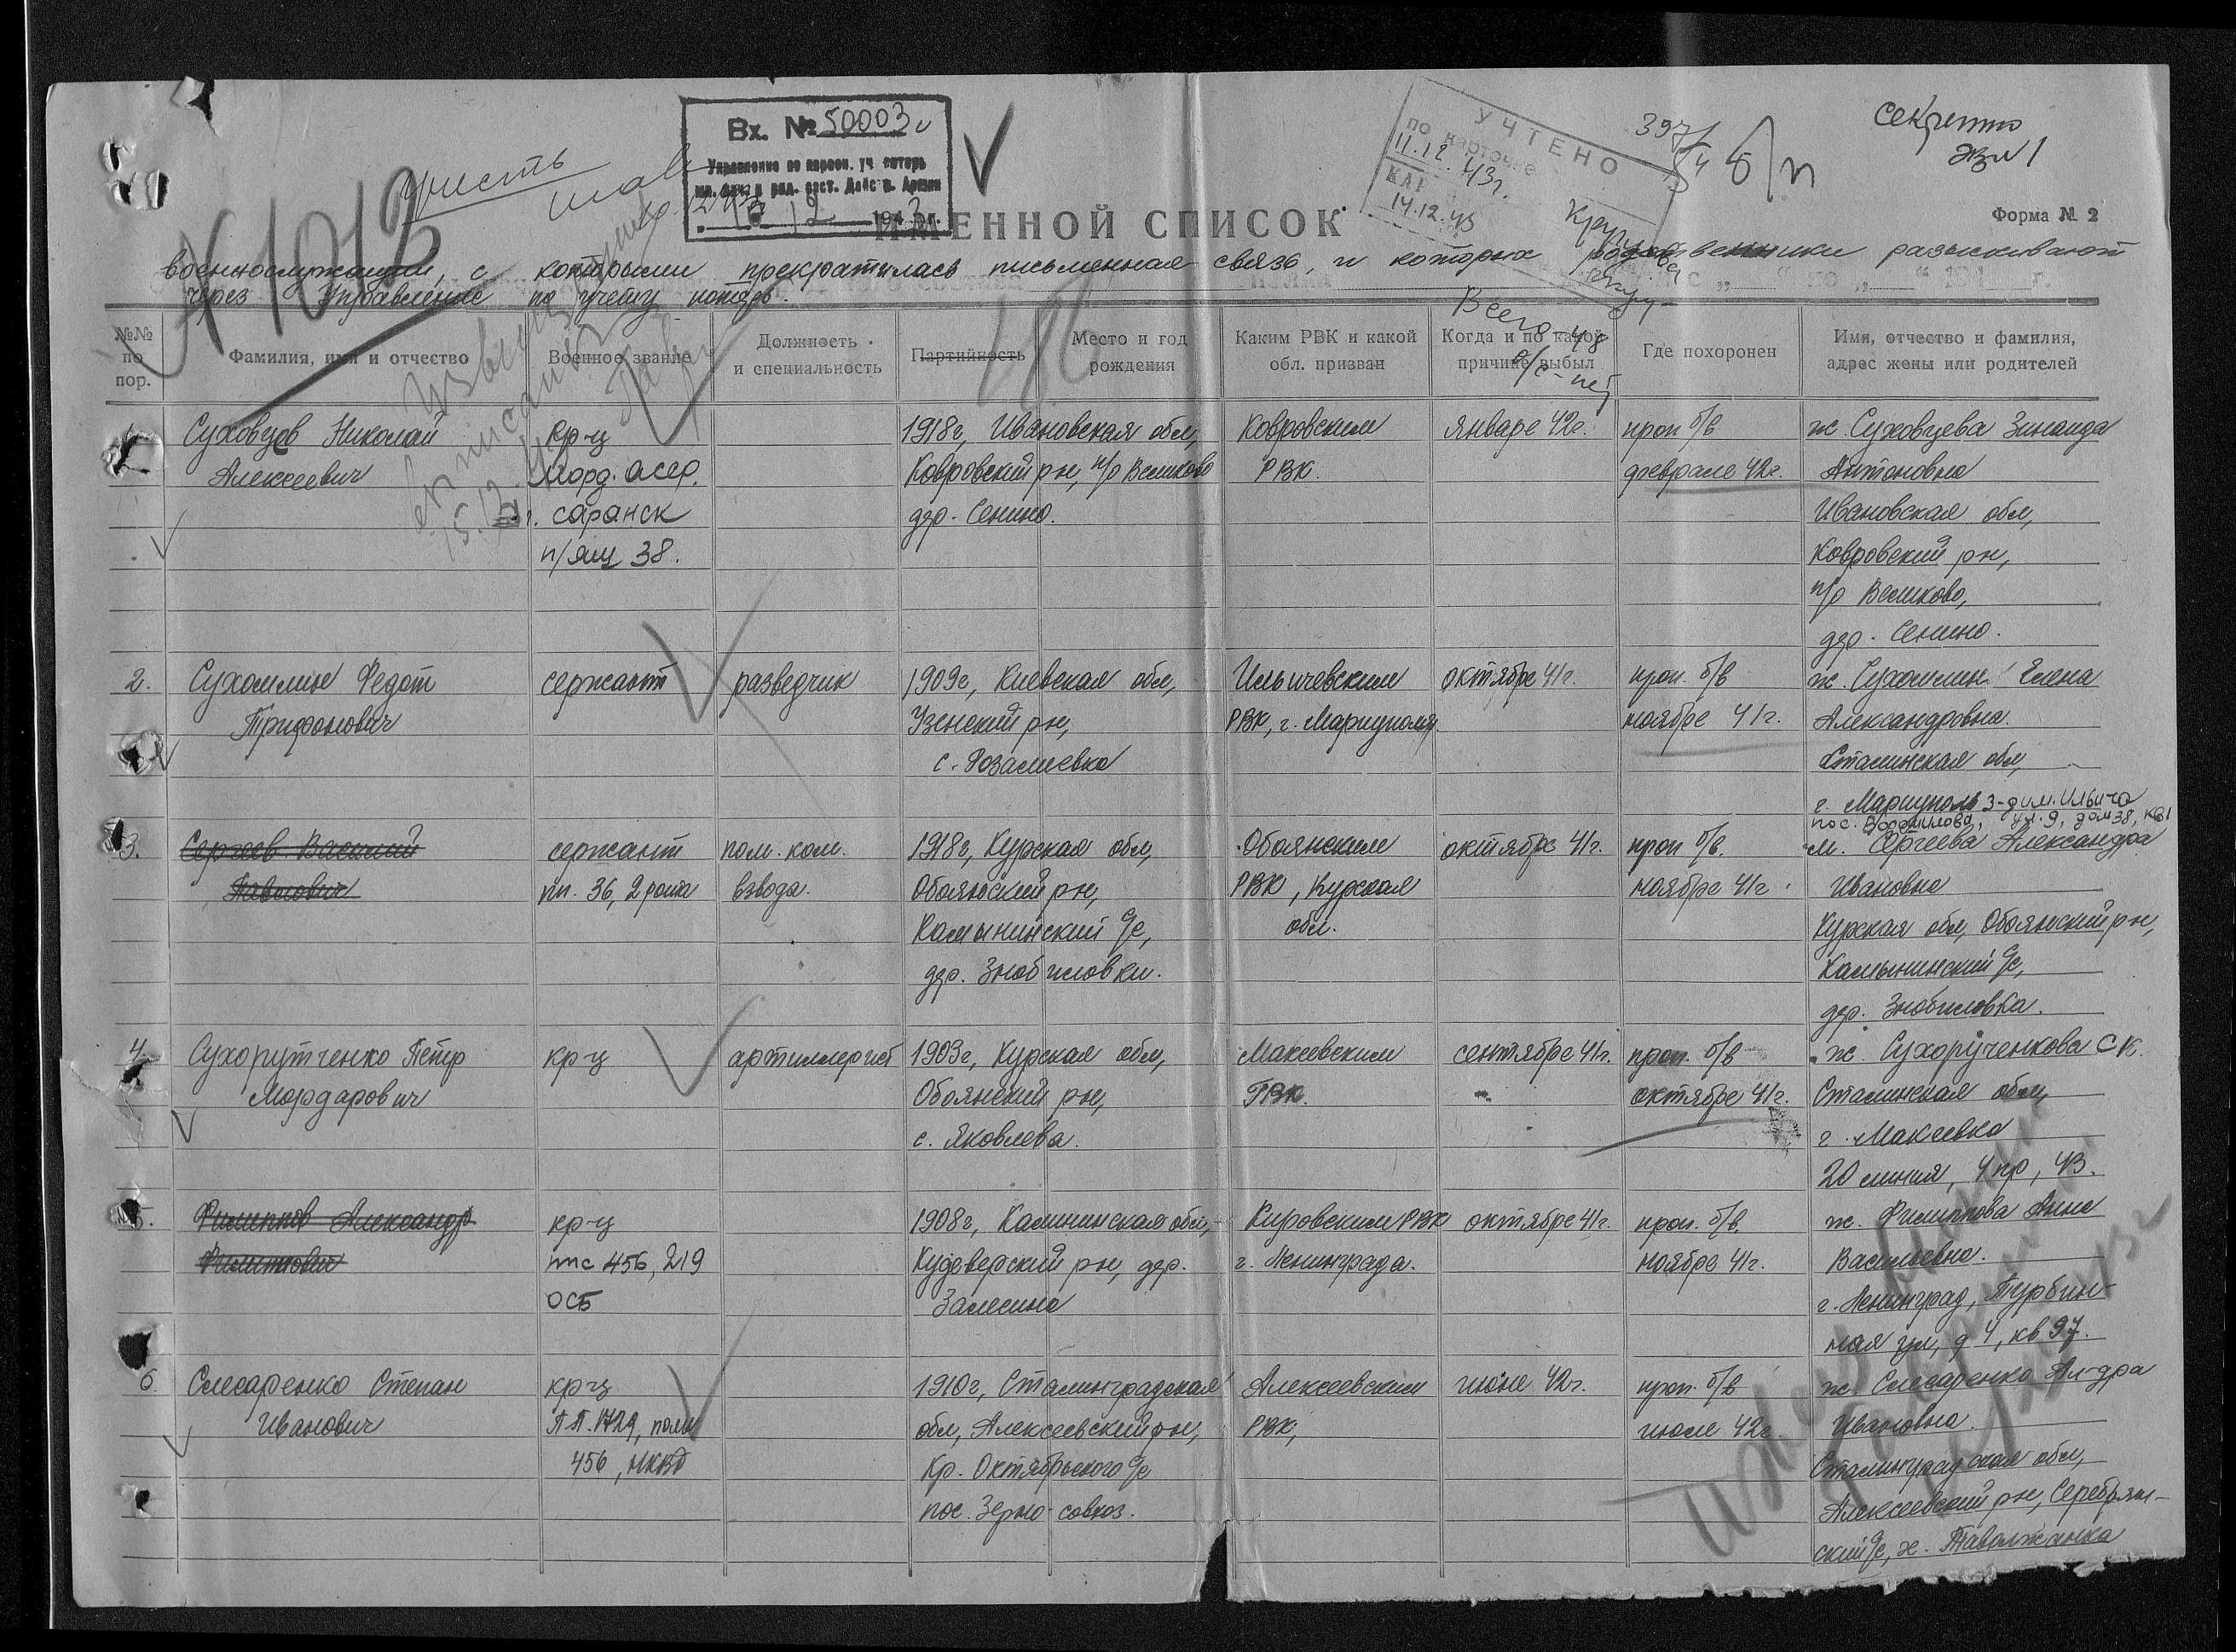 Вх. № 50003с
Управление по персон. уч. потерь
мл. нач. и ряд. сост. Действ. Армии
12 1943 г.
учесть
УЧТЕНО
по карточке
11.12.43г.
14.12.43
397/
Секретно
экз 1
Форма № 2
ИМЕННОЙ СПИСОК
военнослужащих, с которыми прекратилась письменная связь, и которых родственники разыскивают
через Управление по учету потерь.
Всего - 48
в/с - нет
№№ по пор.
Фамилия, имя и отчество
Военное звание
Должность и специальность
Партийность
Место и год рождения
Каким РВК и какой обл. призван
Когда и по какой причине выбыл
Где похоронен
Имя, отчество и фамилия, адрес жены или родителей
Суховцев Николай кр-ц 1918г, Ивановская обл, Ковровским январе 42г. проп б/в ж. Суховцева Зинаида
Алексеевич Морд. АССР. Ковровский рн, п/о Великово РВК. феврале 42г. Антоновна
г. Саранск дер. Сенино. Ивановская обл,
п/ящ 38. Ковровский рн,
п/о Великово,
дер. Сенино.
2. Сухомлин Федот сержант разведчик 1909г, Киевская обл, Ильичевским октябре 41г. проп. б/в ж. Сухомлин Елена
Трифонович Узенский рн, РВК, г. Мариуполя. ноябре 41г. Александровна.
с. Розалиевка Сталинская обл,
г. Мариуполь з-д им. Ильича
пос. Ворошилова, ул. 9, дом 38, кв1
3. Сергеев Василий сержант пом. ком. 1918г, Курская обл, Обоянским октябре 41г. проп б/в. м. Сергеева Александра
Павлович пп. 36, 2 рота взвода. Обоянский рн, РВК, Курская ноябре 41г. Ивановна
Камынинский с/с, обл. Курская обл, Обоянский рн,
дер. Знобиловки. Камынинский с/с,
дер. Знобиловка.
4. Сухорутченко Петр кр-ц артиллерист 1903г, Курская обл, Макеевским сентябре 41г. проп. б/в ж. Сухорученкова С К.
Мордарович Обоянский рн, ГВК. октябре 41г. Сталинская обл,
с. Яковлева. г. Макеевка
20 линия, 4 пр, 43.
5. Филиппов Александр кр-ц 1908г, Калининская обл, Кировским РВК октябре 41г. проп. б/в. ж. Филиппова Анна
Филиппович ппс 456, 219 Кудеверский рн, дер. г. Ленинграда. ноябре 41г. Васильевна.
ОСБ Залесина г. Ленинград, Турбин-
ная ул, д 4, кв 97.
6. Слесаренко Степан кр-ц 1910г, Сталинградская Алексеевским июне 42г. проп. б/в ж. Слесаренко Ал-дра
Иванович П.П. 1729, полк обл, Алексеевский рн, РВК, июле 42г. Ивановна.
456, НКВД Кр. Октябрьского с/с Сталинградская обл,
пос. Зерно-совхоз. Алексеевский рн, Серебрян-
ский с/с, х. Таволжанка